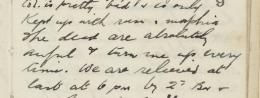 Col. is pretty bad & is only
Kept up with rum & morphia
The dead are absolutely
awful & turn me up every
time. We are relieved at
last at 6 pm by 2nd